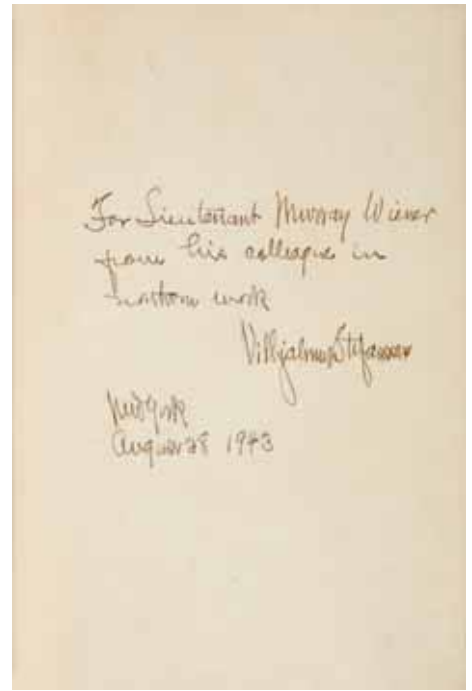 For Lieutenant Murray Wiener
from his colleague in
northern work
Vilhjalmur Stefansson
New York
August 28 1943